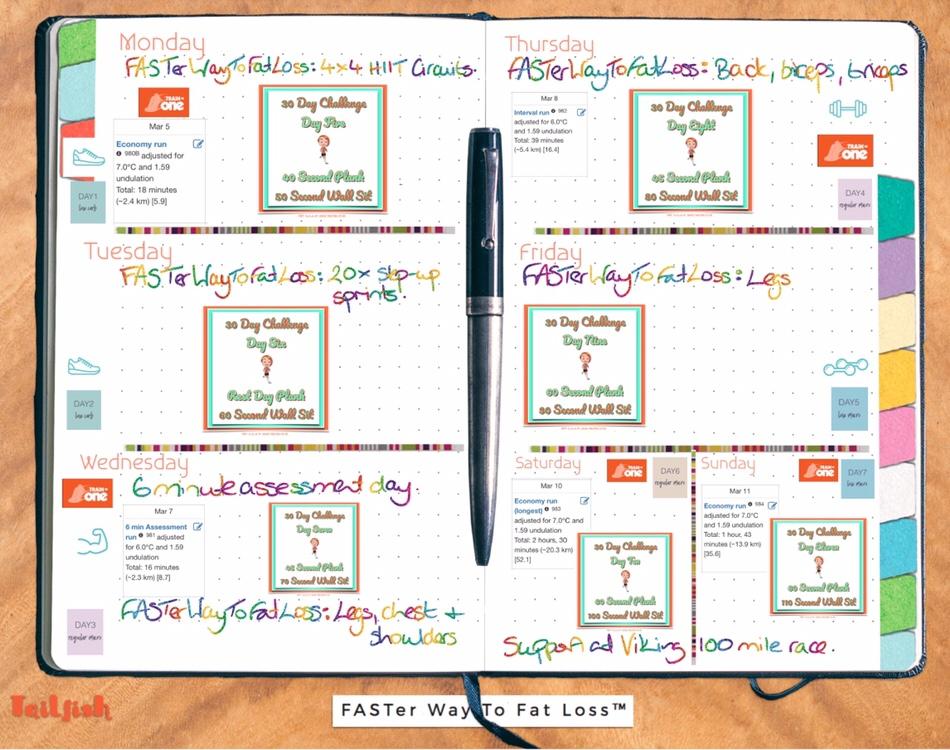 Monday
FASTer WayToFatLoss: 4x4 HIIT Circuits.
TRAIN AS ONE
Mar 5
Economy run
980B adjusted for
7.0°C and 1.59
undulation
Total: 18 minutes
(~2.4 km) [5.9]
30 Day Challenge
Day Five
40 Second Plank
50 Second Wall Sit
DAY1
low carb
Tuesday
FASTer WayToFatLoss: 20x step-up
sprints.
30 Day Challenge
Day Six
Rest Day Plank
60 Second Wall Sit
DAY2
low carb
Wednesday
6 minute assessment day.
TRAIN AS ONE
Mar 7
6 min Assessment
run 981 adjusted
for 6.0°C and 1.59
undulation
Total: 16 minutes
(~2.3 km) [8.7]
30 Day Challenge
Day Seven
45 Second Plank
70 Second Wall Sit
DAY3
regular macro
FASTer WayToFatLoss: Legs, chest +
shoulders
Thursday
FASTer WayToFatLoss: Back, biceps, triceps
Mar 8
Interval run 982
adjusted for 6.0°C
and 1.59 undulation
Total: 39 minutes
(~5.4 km) [16.4]
30 Day Challenge
Day Eight
45 Second Plank
80 Second Wall Sit
TRAIN AS ONE
DAY4
regular macro
Friday
FASTer WayToFatLoss: Legs
30 Day Challenge
Day Nine
60 Second Plank
90 Second Wall Sit
DAY5
low macro
Saturday
TRAIN AS ONE
DAY6
regular macro
Mar 10
Economy run
(longest) 983
adjusted for 7.0°C and
1.59 undulation
Total: 2 hours, 30
minutes (~20.3 km)
[52.1]
30 Day Challenge
Day Ten
60 Second Plank
100 Second Wall Sit
Sunday
TRAIN AS ONE
DAY7
low macro
Mar 11
Economy run 984
adjusted for 7.0°C
and 1.59 undulation
Total: 1 hour, 43
minutes (~13.9 km)
[35.6]
30 Day Challenge
Day Eleven
60 Second Plank
110 Second Wall Sit
Support at Viking 100 mile race.
Tailfish
FASTer Way To Fat Loss™